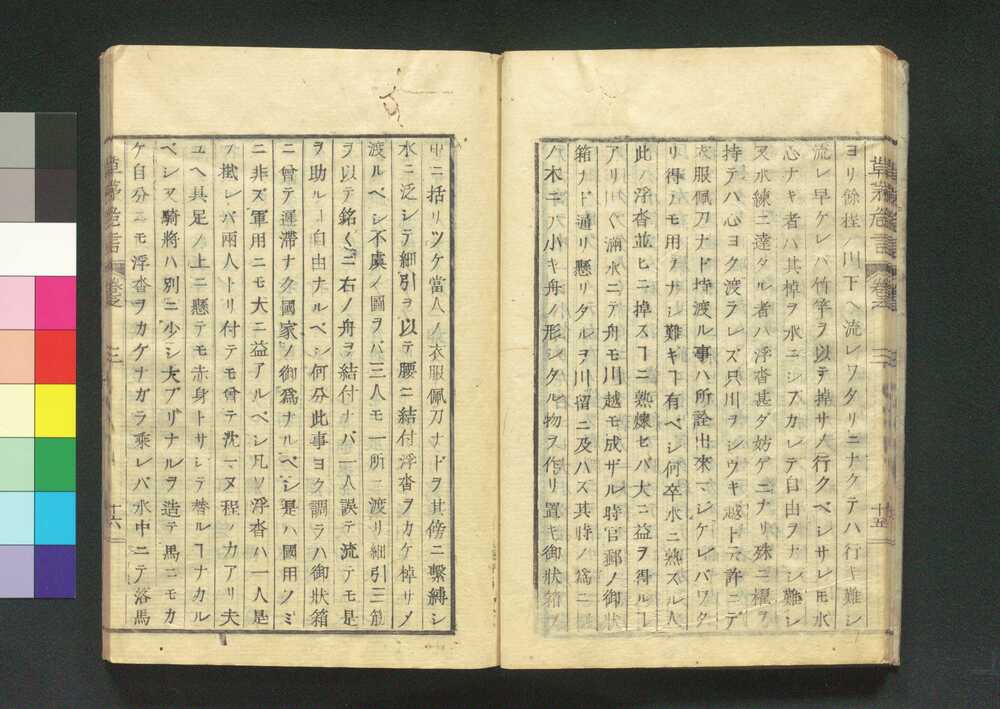 草茅危言
巻之
三
十五
ヨリ餘程ノ川下ヘ流レワタリニナクテハ行キ難シ
流レ早ケレバ竹竿ヲ以テ掉サノ行クベシサレ𪜈水
心ナキ者ハ其掉ヲ水ニシブカレテ自由ヲナシ難シ
又水練ニ達タル者ハ浮沓甚ダ妨ゲニナリ殊ニ櫂ヲ
持テハ心ヨク渡ラレズ只川ヲシヅキ越トテ許ニテ
衣服佩刀ナド持渡ル事ハ所詮出來マジケレバワタ
リ得テモ用ヲナシ難キヿ有ベシ何卒水ニ熟スル人
此ノ浮沓並ヒニ掉スヿニ熟煉セバ大ニ益ヲ得ルヿ
アリ川〱滿水ニテ舟モ川越モ成ザル時官郵ノ御狀
箱ナド通リ懸リタルヲ川留ニ及ハズ其時ノ爲ニ
ノ木ニテ小キ舟ノ形シタル物ヲ作リ置キ御狀箱ヲ
中ニ括リツケ當人ノ衣服佩刀ナドヲ其傍ニ繫縛シ
水ニ泛シテ細引ヲ以テ腰ニ結付浮沓ヲカケ棹サメ
渡ルベシ不虞ノ圖ヲバ二三人モ一所ニ渡リ細引三
ヲ以テ銘〱ニ右ノ舟ヲ結付ナバ一人誤テ流テモ是
ヲ助ルヿ自由ナルベシ何分此事ヨク調ラハ御狀箱
ニ曾テ遲滯ナク國家ノ御爲ナルベシ是ハ國用ノミ
ニ非ズ軍用ニモ大ニ益アルベシ凡ソ浮沓ハ一人是
ヲ擮レバ兩人トリ付テモ曾テ沈マヌ程ノ力アリ夫
ユヘ具足ノ上ニ懸テモ赤身トサシテ替ルヿナカル
ベシ又騎將ハ別ニ少シ大ブリナルヲ造テ馬ニモカ
ケ自分ニモ浮沓ヲカケナガラ乘レバ水中ニテ落馬
草茅危言
巻之
三
十六